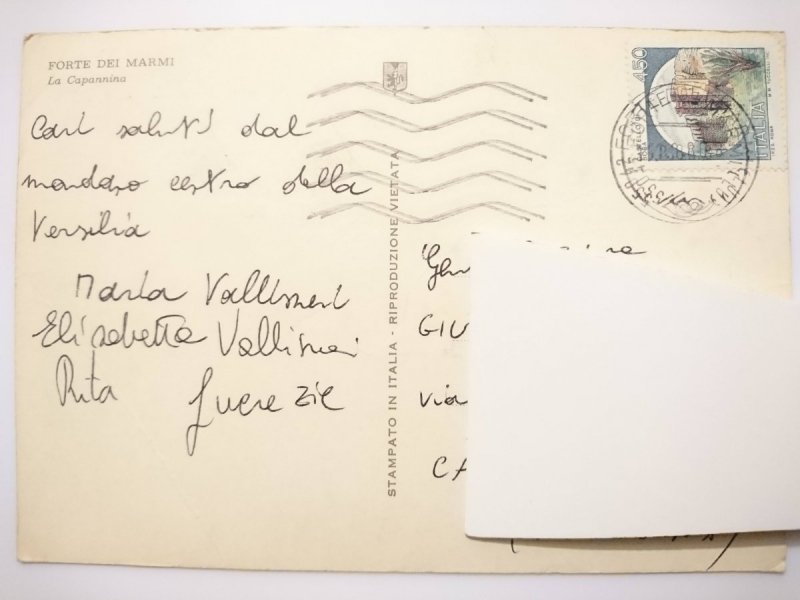 FORTE DEI MARMI
La Capannina
Cari saluti dal
mondano centro della
Versilia
Maria Vallisneri
Elisabetta Vallisneri
Rita Lucrezie
STAMPATO IN ITALIA - RIPRODUZIONE VIETATA
450
ITALIA
GIU
via